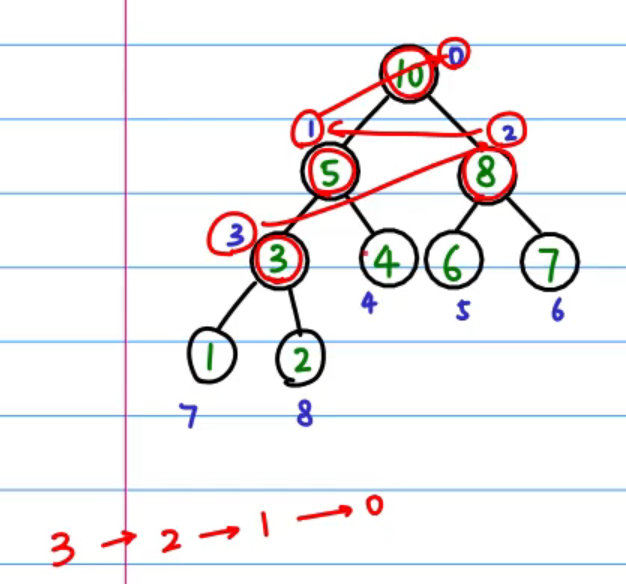 10 0
1 2
5 8
3
3 4 6 7
4 5 6
1 2
7 8
3 → 2 → 1 → 0